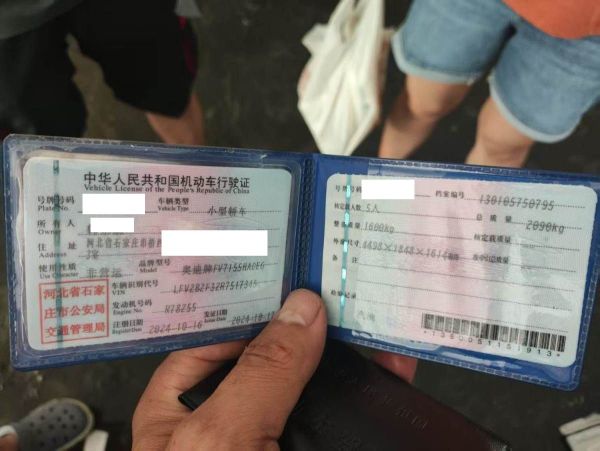 中华人民共和国机动车行驶证
Vehicle License of the People's Republic of China
号牌号码
Plate No.
车辆类型
Vehicle Type
小型轿车
所有人
Owner
住址
Address
河北省石家庄市桥西
使用性质
Use Character
非营运
品牌型号
Model
奥迪牌FV7155HACEG
河北省石家
庄市公安局
交通管理局
车辆识别代号
VIN
发动机号码
Engine No.
R78255
注册日期
Register Date
2024-10-16
发证日期
Issue Date
号牌号码
档案编号
130105750795
核定载人数
5人
总质量
2090kg
整备质量
1600kg
核定载质量
外廓尺寸
4498×1848×1614
备注
检验记录